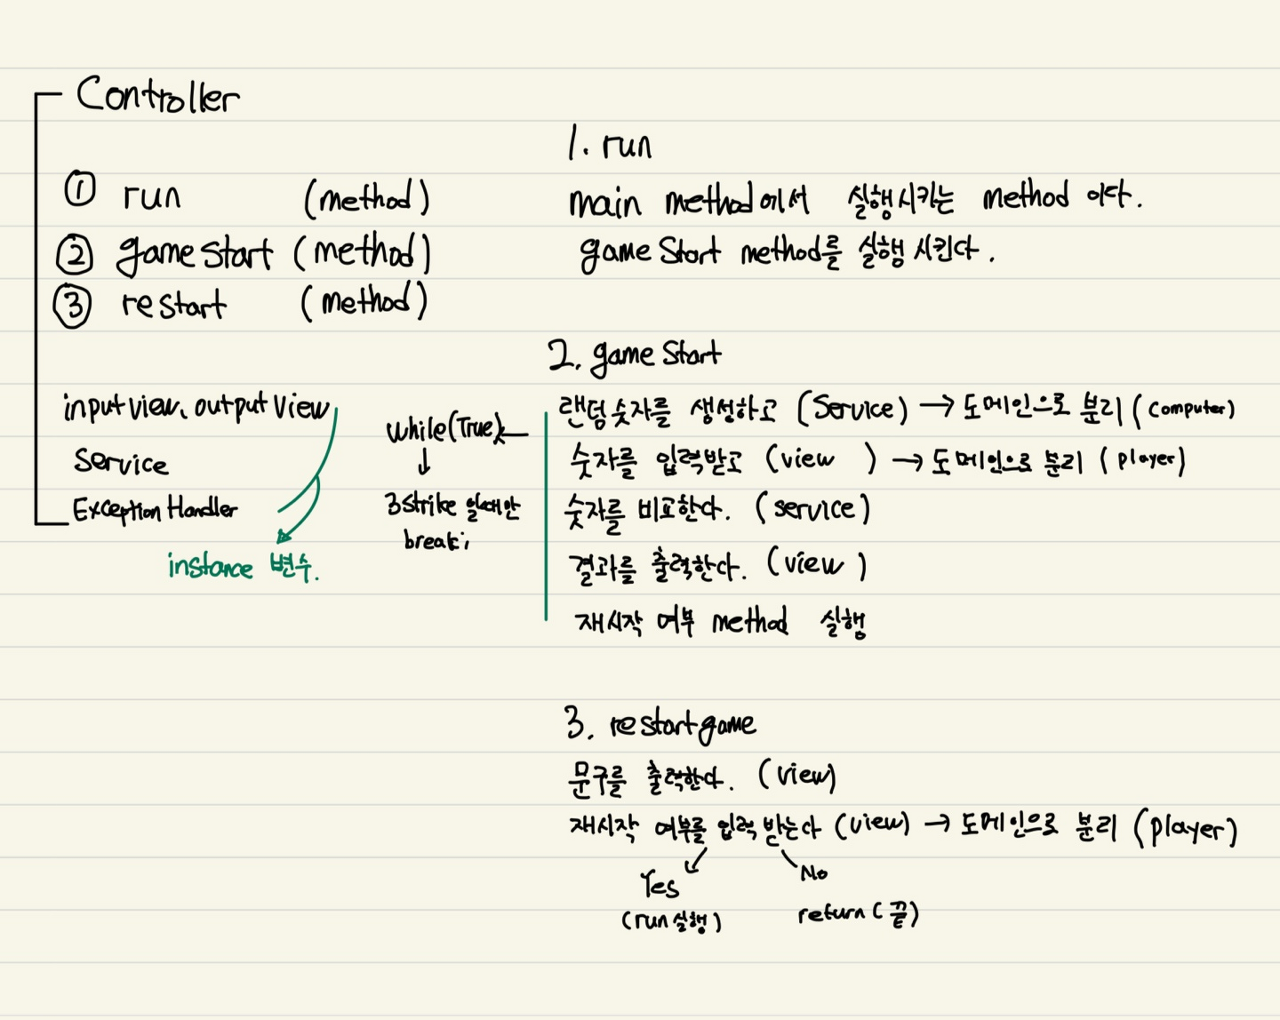 Controller
① run (method)
② game Start (method)
③ restart (method)
input view, output View
Service
Exception Handler
instance 변수.
1. run
main method에서 실행시키는 method 이다.
game Start method를 실행 시킨다.
2. game Start
while(True)
↓
3 strike 일때만
break;
랜덤 숫자를 생성하고 (Service) → 도메인으로 분리 (Computer)
숫자를 입력받고 (view ) → 도메인으로 분리 (player)
숫자를 비교한다. (service)
결과를 출력한다. (view )
재시작 여부 method 실행
3. restart game
문구를 출력한다. (view)
재시작 여부를 입력 받는다 (view) → 도메인으로 분리 (player)
Yes No
(run 실행) return (끝)